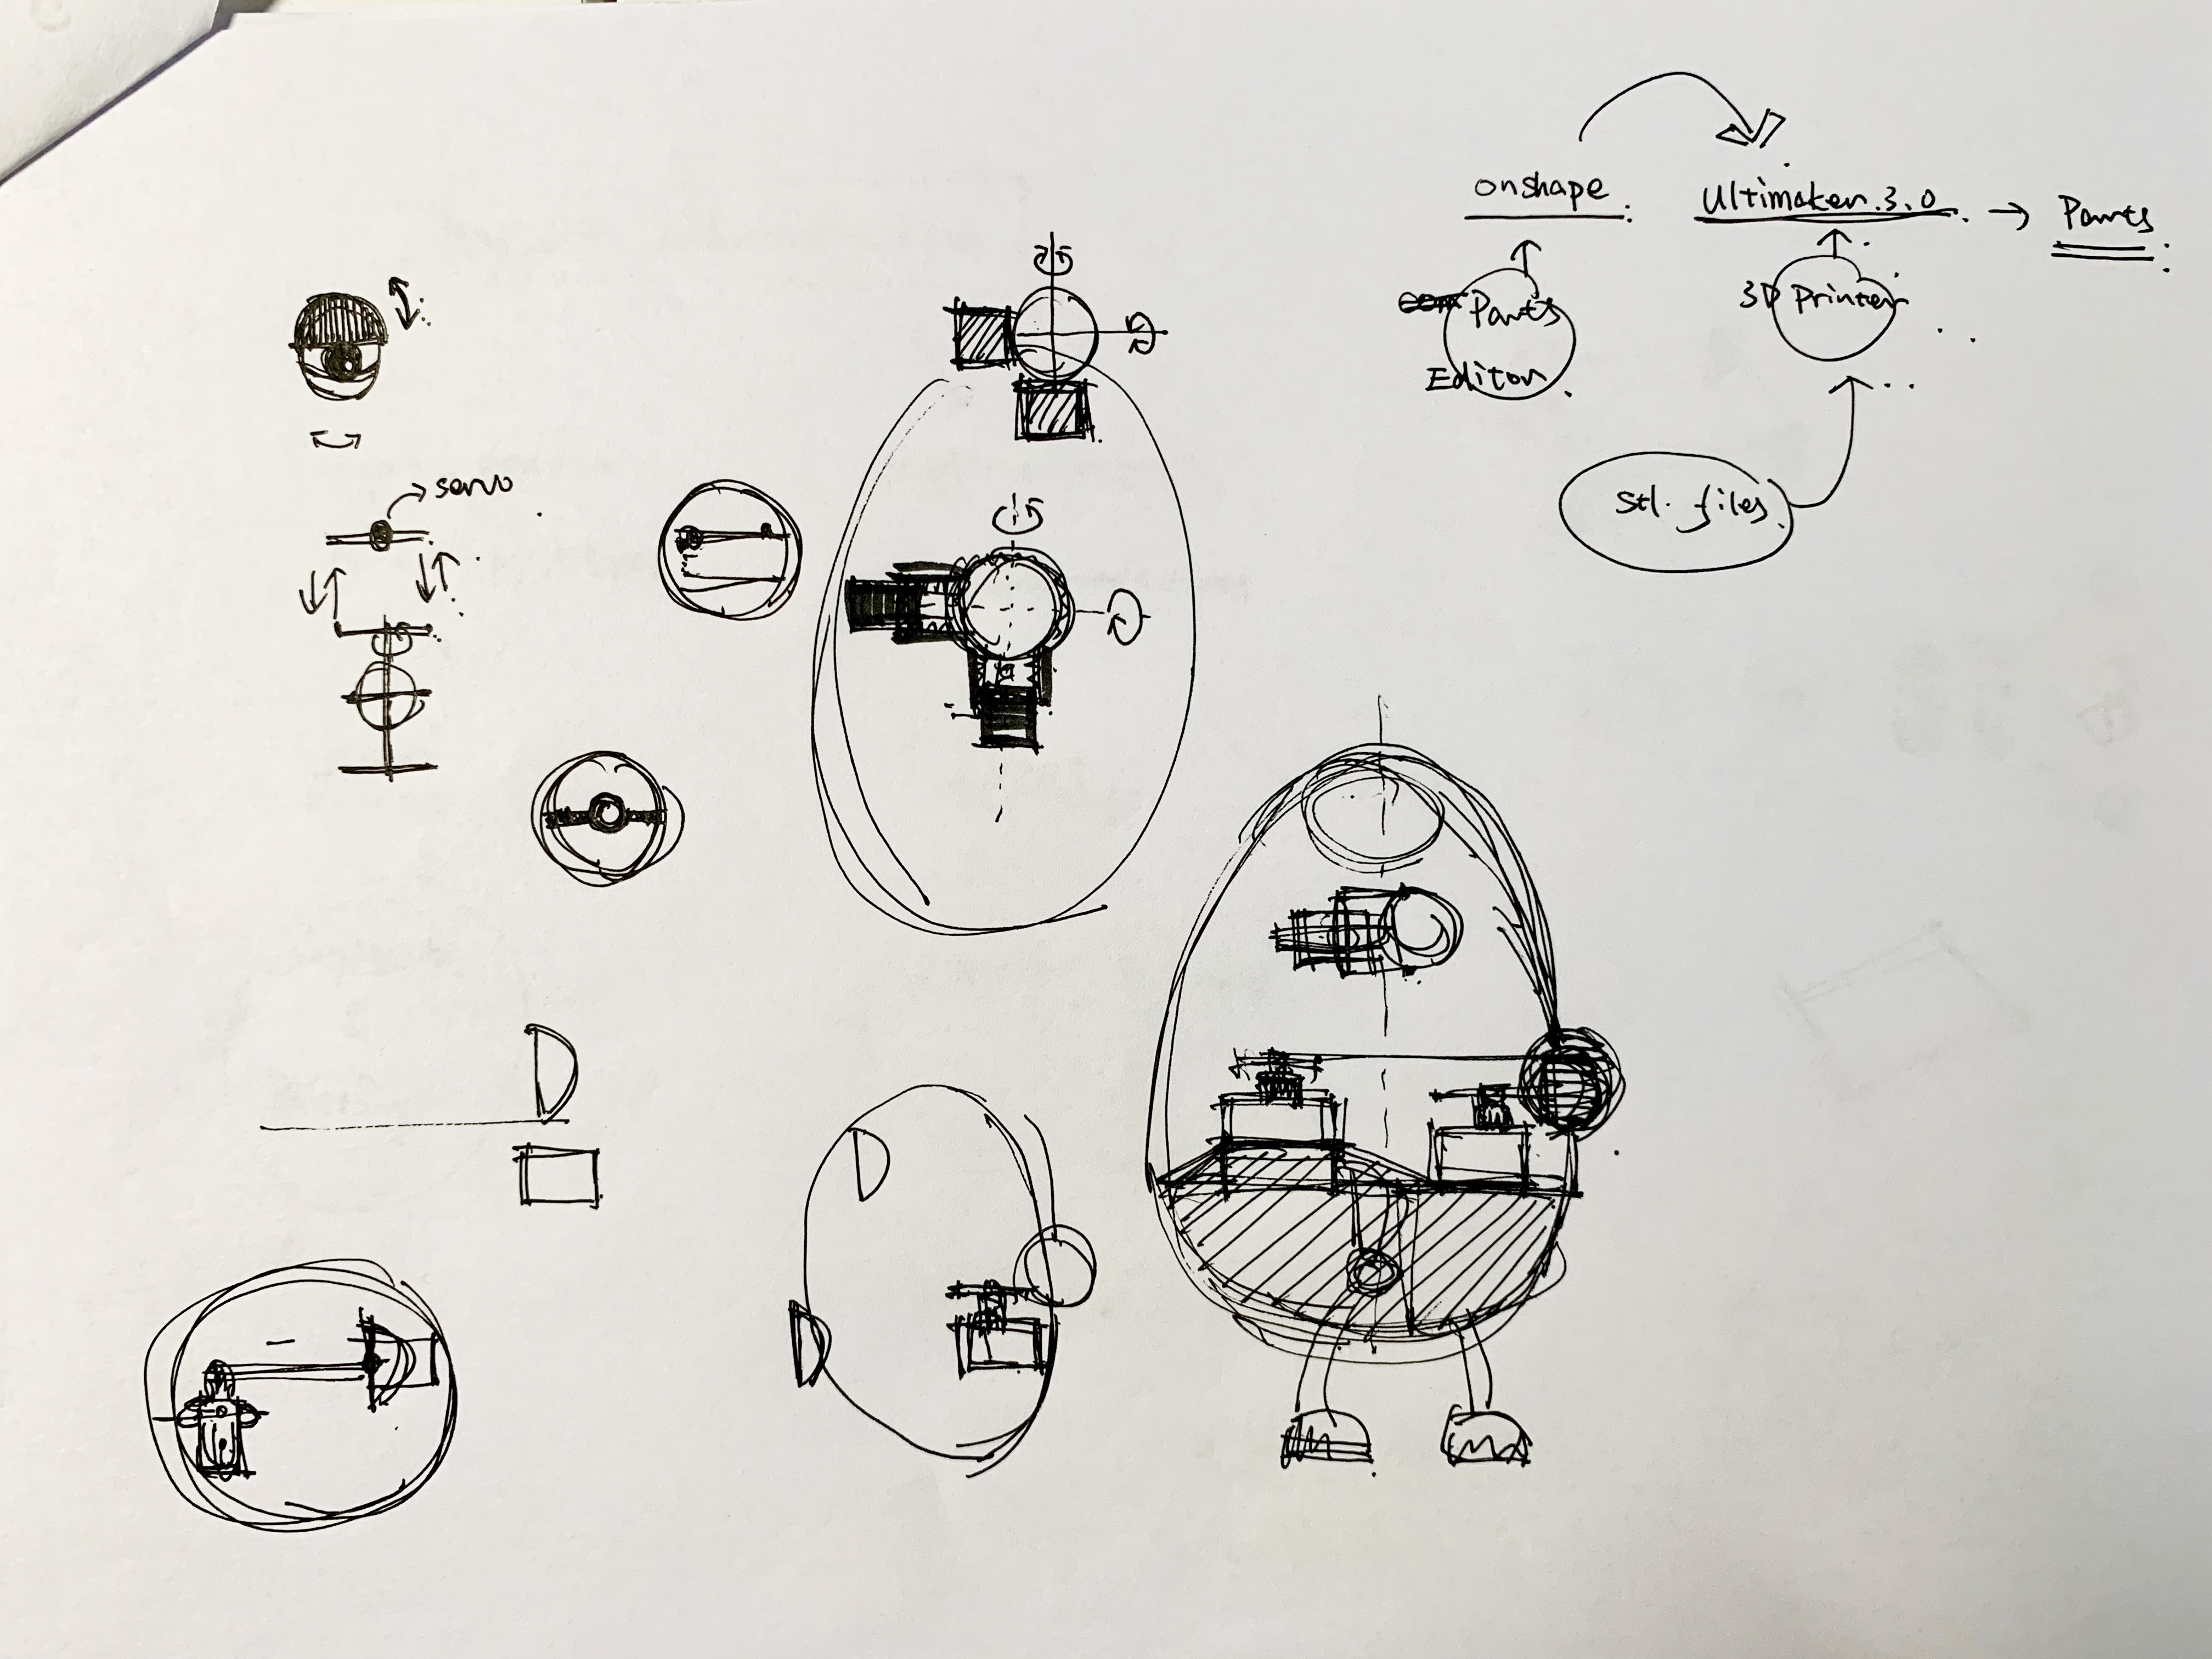 onshape
Ultimaker.3.0. → Parts
Parts
Editor
3D Printer
servo
Stl. files